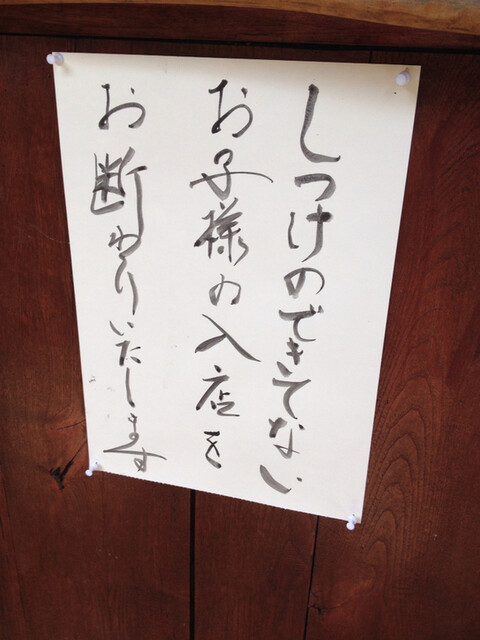 しつけのできてない
お子様の入店を
お断わりいたします